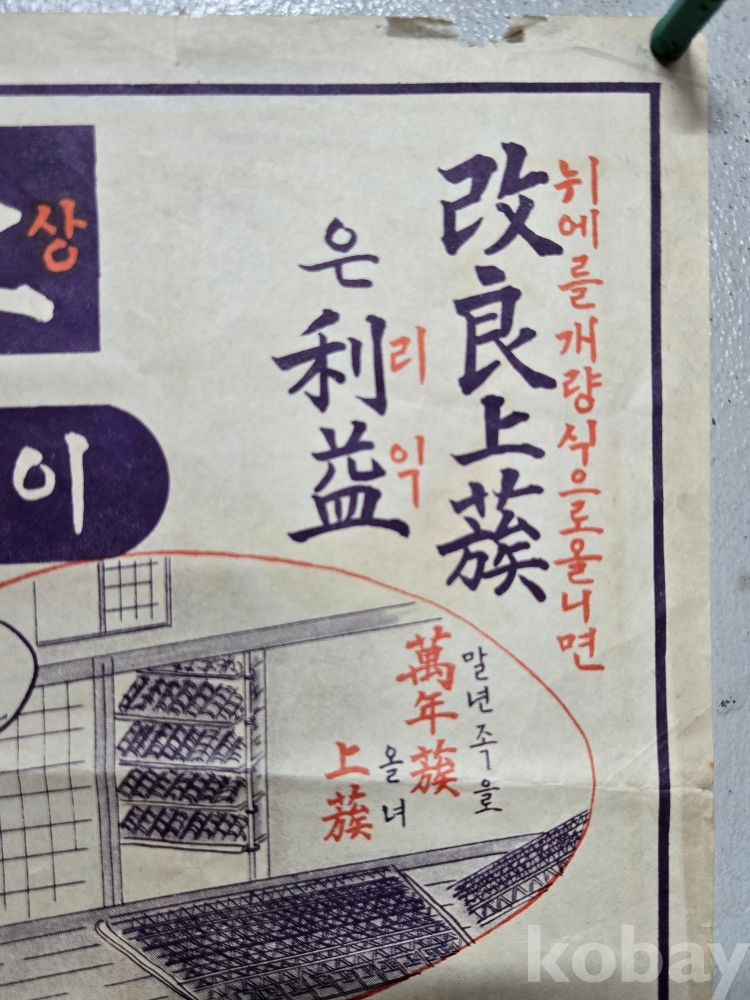 뉘에를개량식으로올니면
改良上蔟
은利益
리익
상
이
말년족을
萬年蔟
올녀
上蔟
kobay